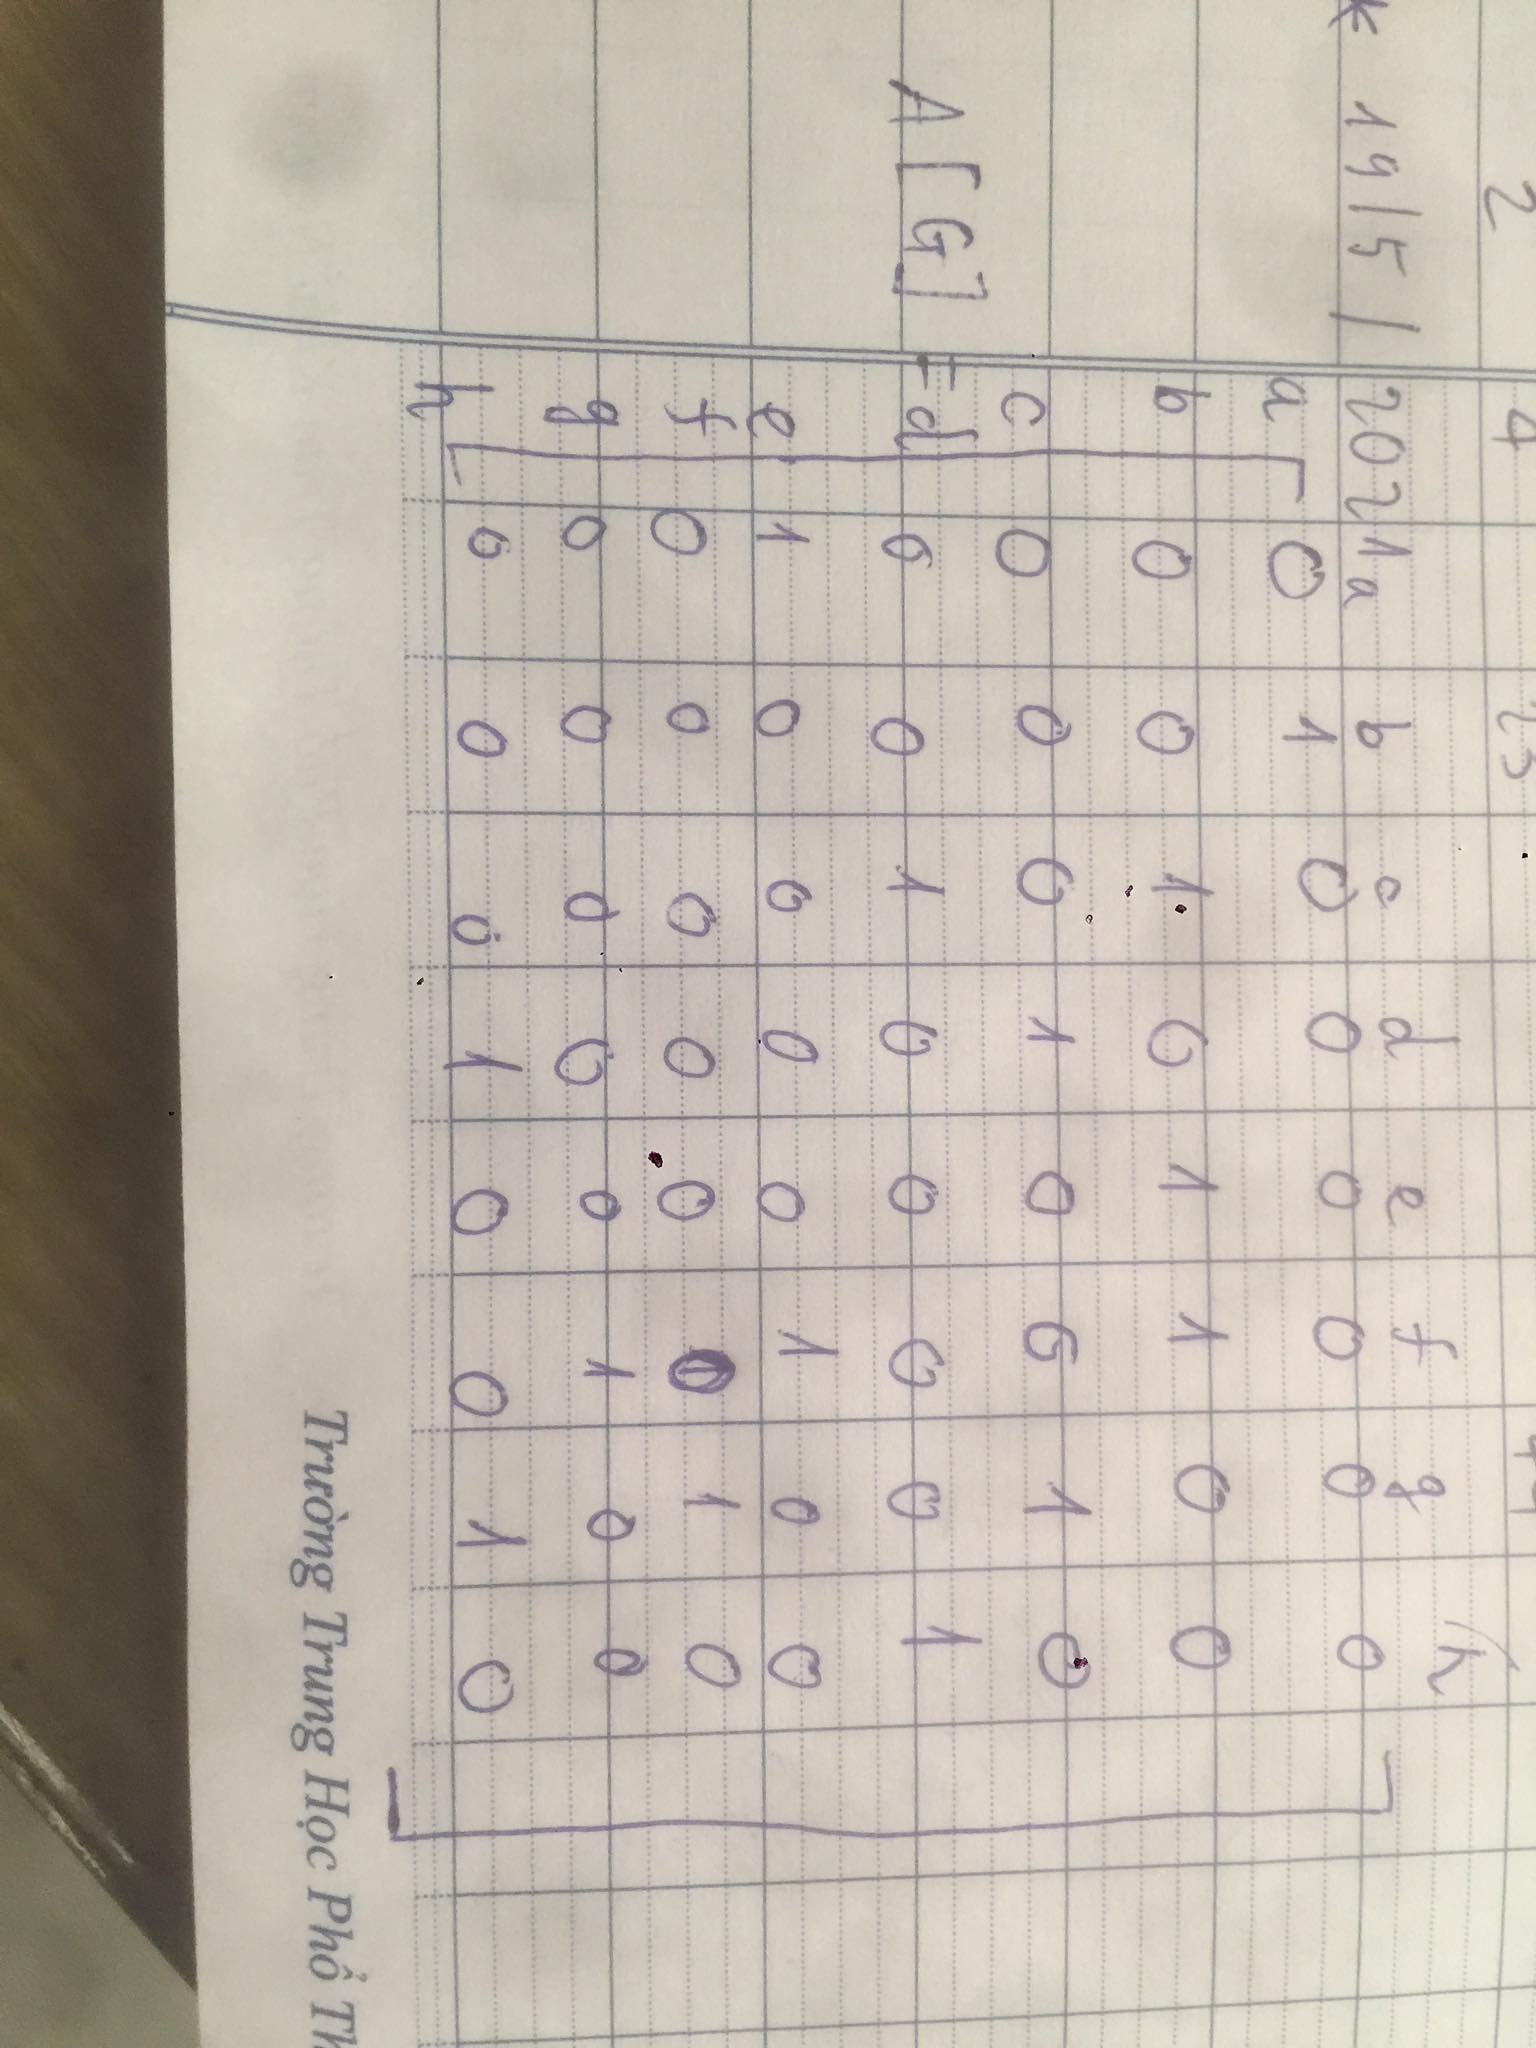 2 4
* 19/5/2021
a b c d e f g h
a 0 1 0 0 0 0 0 0
b 0 0 1 0 1 1 0 0
c 0 0 0 1 0 0 1 0
A[G] = d 0 0 1 0 0 0 0 1
e 1 0 0 0 0 1 0 0
f 0 0 0 0 0 0 1 0
g 0 0 0 0 0 1 0 0
h 0 0 0 1 0 0 1 0
Trường Trung Học Phổ